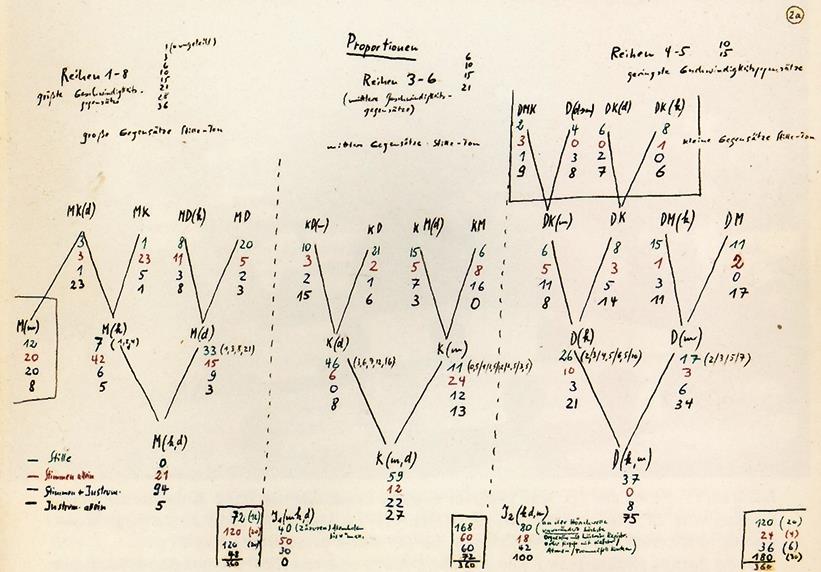 2a
Proportionen
Reihen 1-8
größte Geschwindigkeits-
gegensätze
1
3
6
10
15
21
28
36
große Gegensätze Stille-Ton
Reihen 3-6
(mittlere Geschwindigkeits-
gegensätze)
6
10
15
21
mittlere Gegensätze Stille-Ton
Reihen 4-5
10
15
geringste Geschwindigkeitsgegensätze
kleine Gegensätze Stille-Ton
DMK DK(d) DK(k)
2 4 6 8
3 0 0 1
1 3 2 0
9 8 7 6
MK(d) MK MD(k) MD
3 1 8 20
3 23 11 5
1 5 3 2
23 1 8 3
KD(m) KD K M(d) KM
10 21 15 6
3 2 5 8
2 1 7 16
15 6 3 0
DK(m) DK DM(k) DM
6 8 15 11
5 3 1 2
11 5 3 0
8 14 11 17
M(m) M(k) M(d)
12 7 33 (1,3,8,21)
20 42 15
20 6 9
8 5 3
K(d) K(m)
46 (3,6,9,12,16) 11
6 24
0 12
8 13
D(k) D(m)
26 17 (2/3/5/7)
10 3
3 6
21 34
M(k,d)
0
21
94
5
K(m,d)
59
12
22
27
D(k,m)
37
0
8
75
— Stille
— Stimmen allein
— Stimmen + Instrum.
— Instrum. allein
72
120 (20)
120
48
360
J1(m,k,d)
40
50
30
0
168
60
60
72
360
J2(k,d,m)
80
18
42
100
120 (20)
24 (4)
36 (6)
180 (30)
360